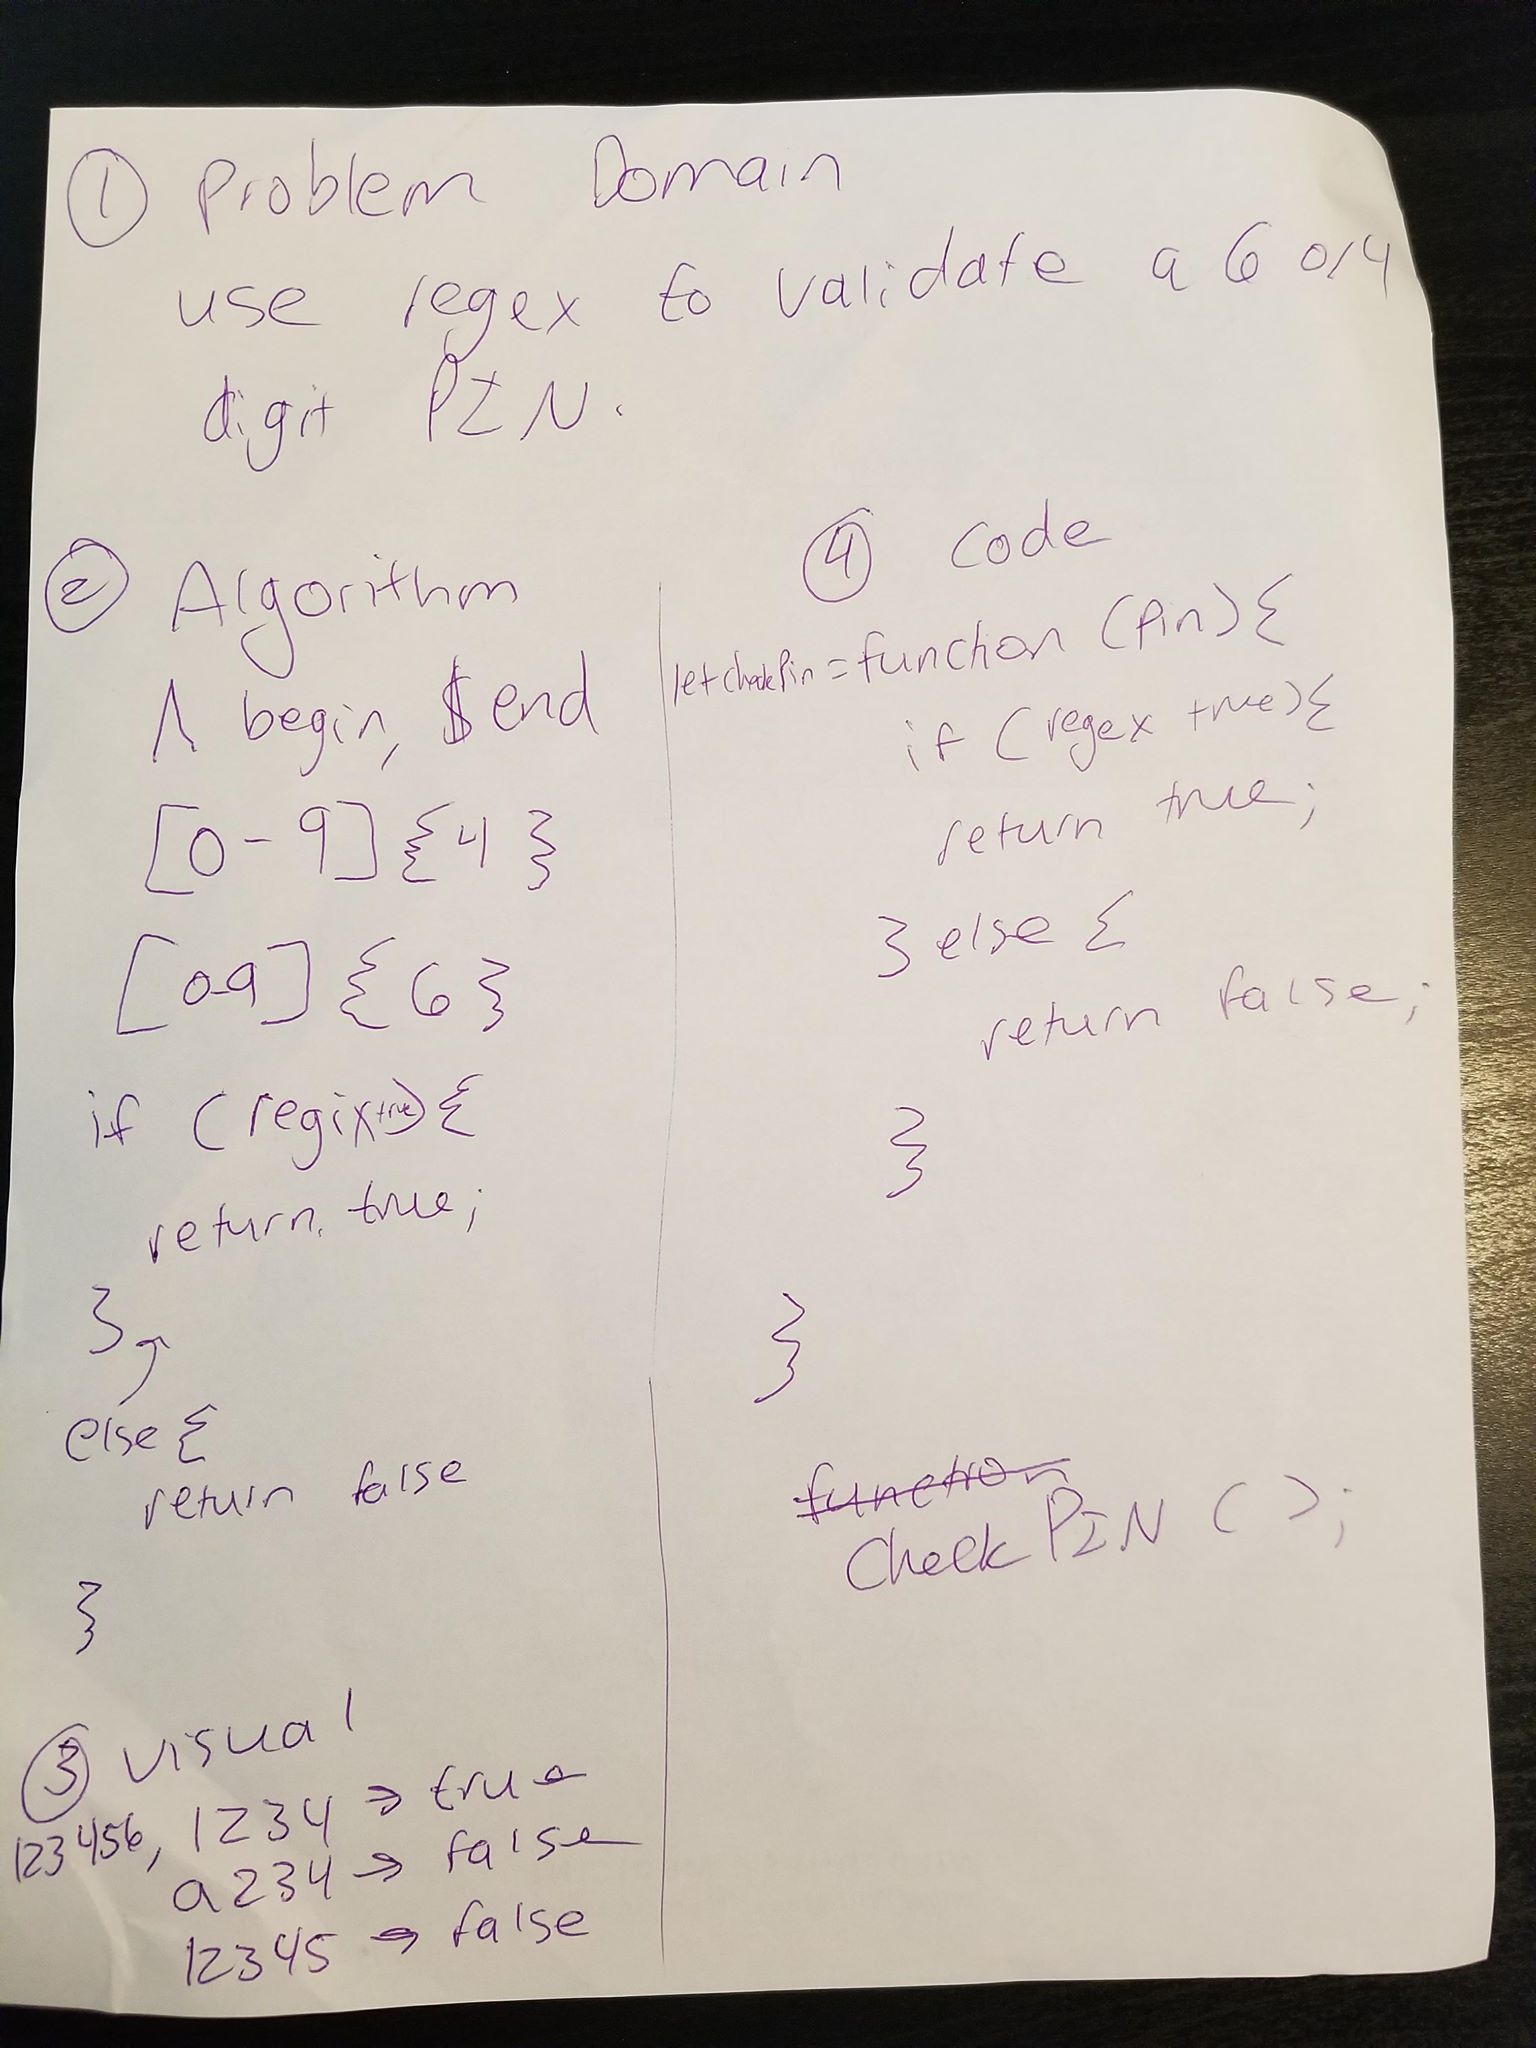 ① Problem Domain
use regex to validate a 6 or 4
digit PIN.
② Algorithm
^ begin, $ end
[0-9]{4}
[0-9]{6}
if (regix true) {
return true;
}
else {
return false
}
③ visual
123456, 1234 → true
a234 → false
12345 → false
④ Code
let checkPin = function (Pin) {
if (regex true) {
return true;
} else {
return false;
}
}
function
Check PIN ( );